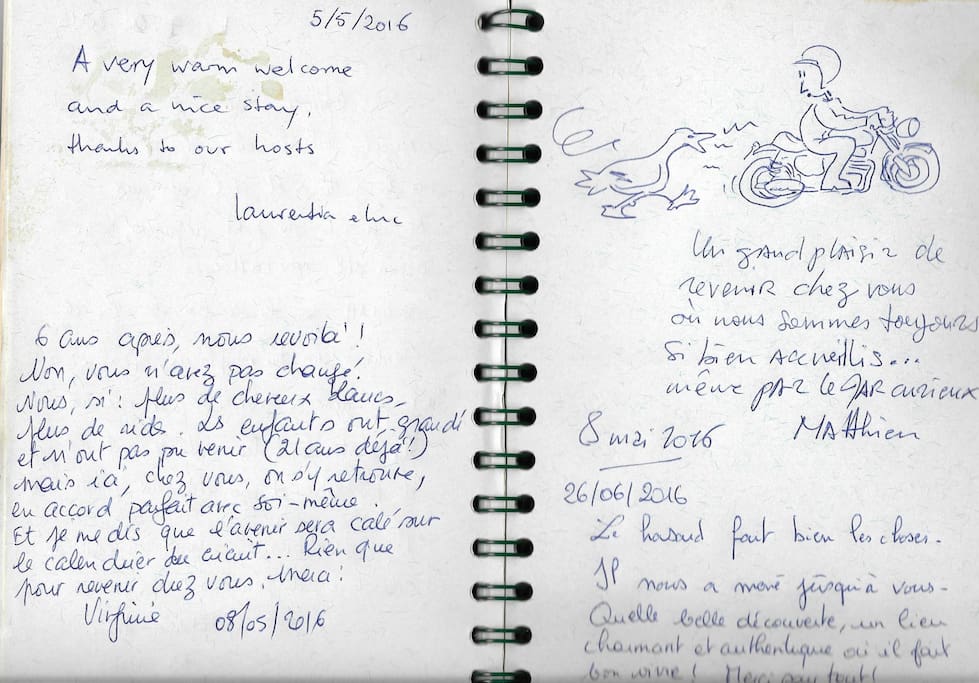 5/5/2016
A very warm welcome
and a nice stay,
thanks to our hosts
6 ans après, nous revoilà !
Non, vous n'avez pas changé.
Nous, si : plus de cheveux blancs,
plus de rides. Les enfants ont grandi
et n'ont pas pu venir (21 ans déjà !)
Mais ici, chez vous, on s'y retrouve,
en accord parfait avec soi-même.
Et je me dis que l'avenir sera calé sur
le calendrier du ... Rien que
pour revenir chez vous. Merci !
Virginie 08/05/2016
Un grand plaisir de
revenir chez vous
où nous sommes toujours
si bien accueillis...
même par le JAR curieux
8 mai 2016 Matthieu
26/06/2016
Le hasard fait bien les choses.
Il nous a mené jusqu'à vous.
Quelle belle découverte, un lieu
charmant et authentique où il fait
bon vivre ! Merci pour tout !